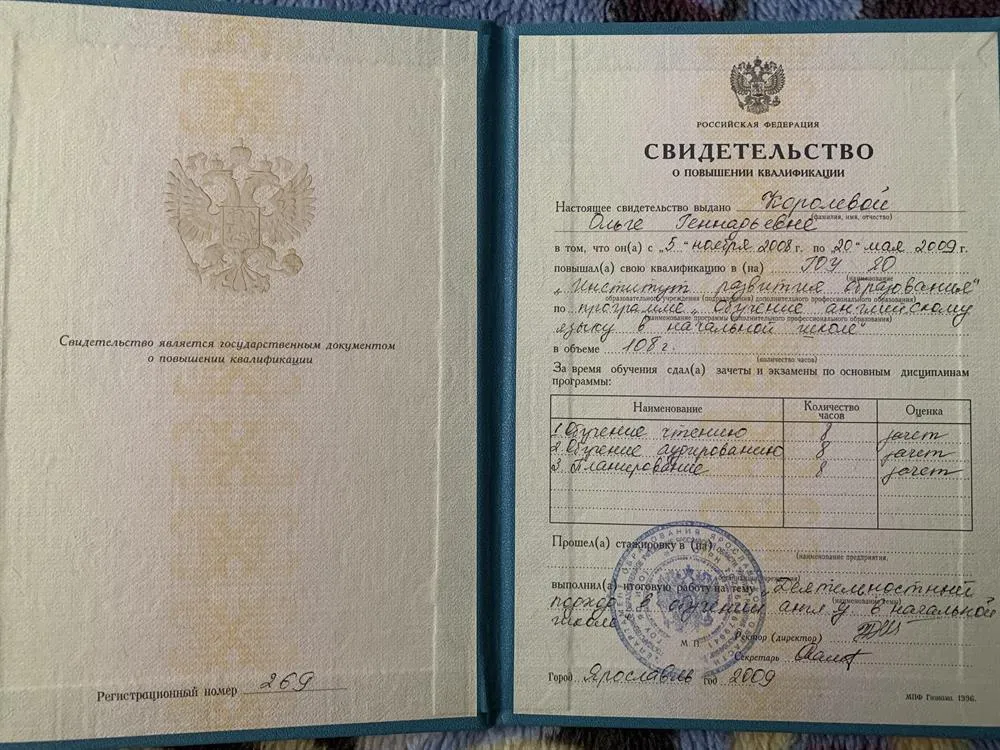 Свидетельство является государственным документом
о повышении квалификации
Регистрационный номер 269
РОССИЙСКАЯ ФЕДЕРАЦИЯ
СВИДЕТЕЛЬСТВО
О ПОВЫШЕНИИ КВАЛИФИКАЦИИ
Настоящее свидетельство выдано Королевой
Ольге Геннадьевне
(фамилия, имя, отчество)
в том, что он(а) с „5“ ноября 2008 г. по „20“ мая 2009 г.
повышал(а) свою квалификацию в (на) ГОУ ЯО
(наименование
„Институт развития образования“
образовательного учреждения (подразделения) дополнительного профессионального образования)
по программе „Обучение английскому
(наименование программы дополнительного профессионального образования)
языку в начальной школе“
в объеме 108 г.
(количество часов)
За время обучения сдал(а) зачеты и экзамены по основным дисциплинам
программы:
Наименование Количество часов Оценка
1. Обучение чтению 8 зачет
2. Обучение аудированию 8 зачет
3. Планирование 8 зачет
Прошел(а) стажировку в (на)
(наименование предприятия,
выполнил(а) итоговую работу на тему Деятельностный
подход в обучении англ. я. в начальной
школе
М. П.
Ректор (директор)
Секретарь
Город Ярославль год 2009
МПФ Гознака. 1996.